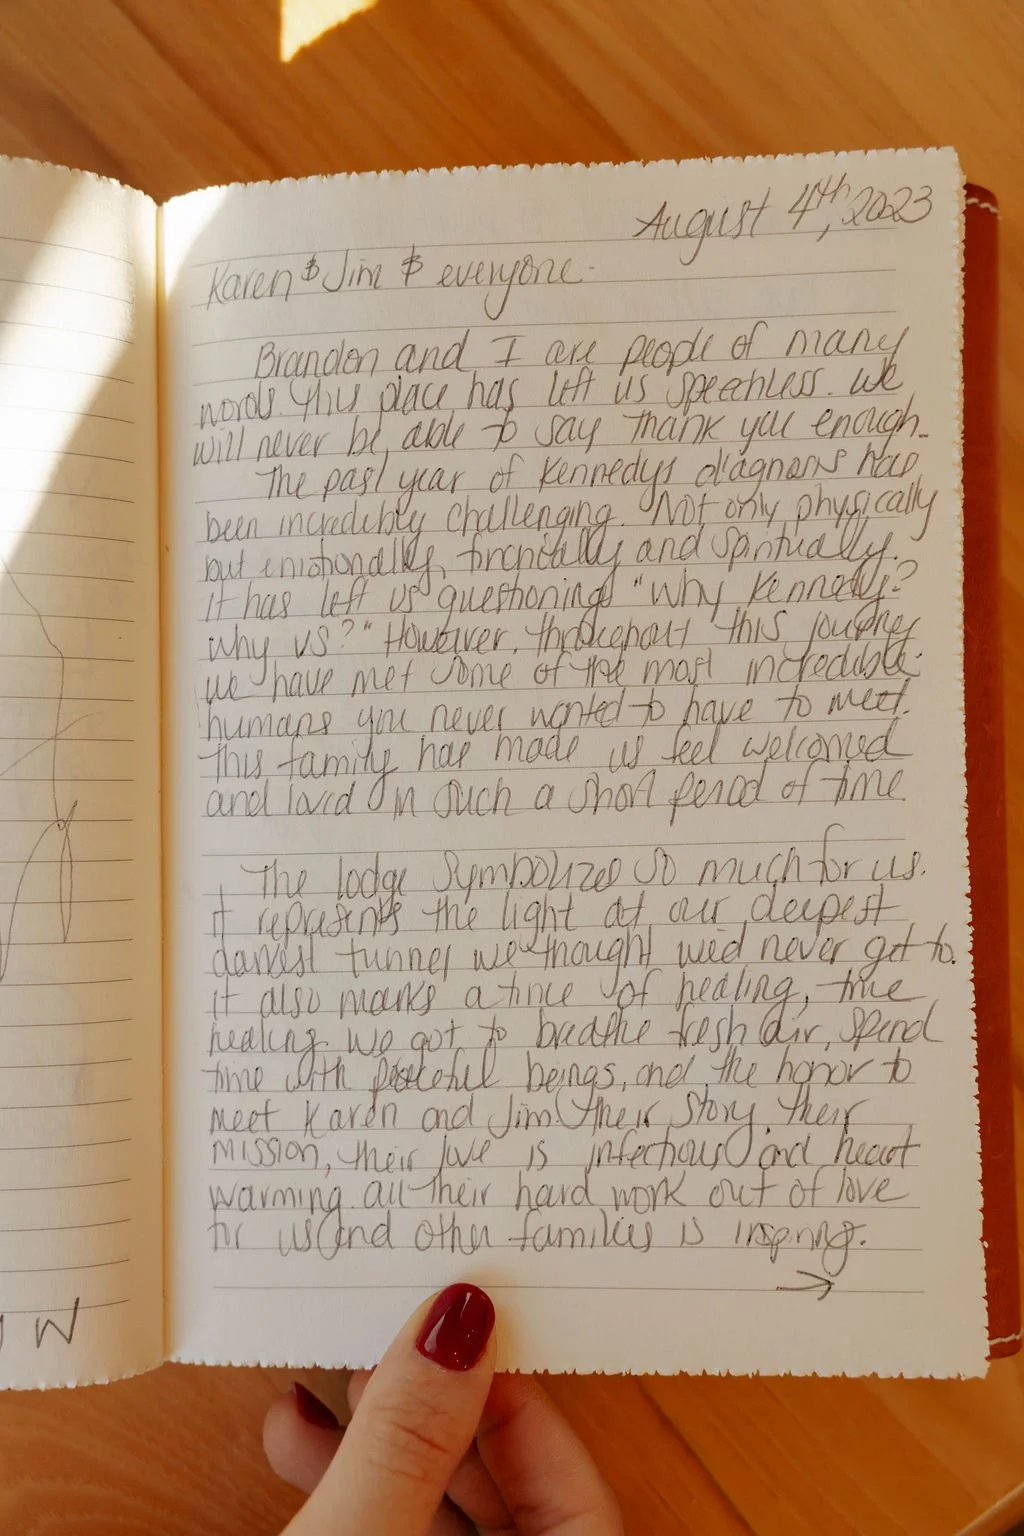 August 4th, 2023
Karen & Jim & everyone.
Brandon and I are people of many
words. This place has left us speechless. We
will never be able to say thank you enough.
The past year of Kennedys diagnosis has
been incredibly challenging. Not only physically
but emotionally, financially and spiritually.
it has left us questioning "why Kennedy?
why us?" However, throughout this journey
we have met some of the most incredible
humans you never wanted to have to meet.
This family has made us feel welcomed
and loved in such a short period of time.
The lodge symbolizes so much for us.
it represents the light at our deepest
darkest tunnel we thought we'd never get to.
it also marks a time of healing, true
healing. we got to breathe fresh air, spend
time with peaceful beings, and the honor to
meet Karen and Jim. Their story, their
mission, their love is infectious and heart
warming. all their hard work out of love
for us and other families is inspiring.
→